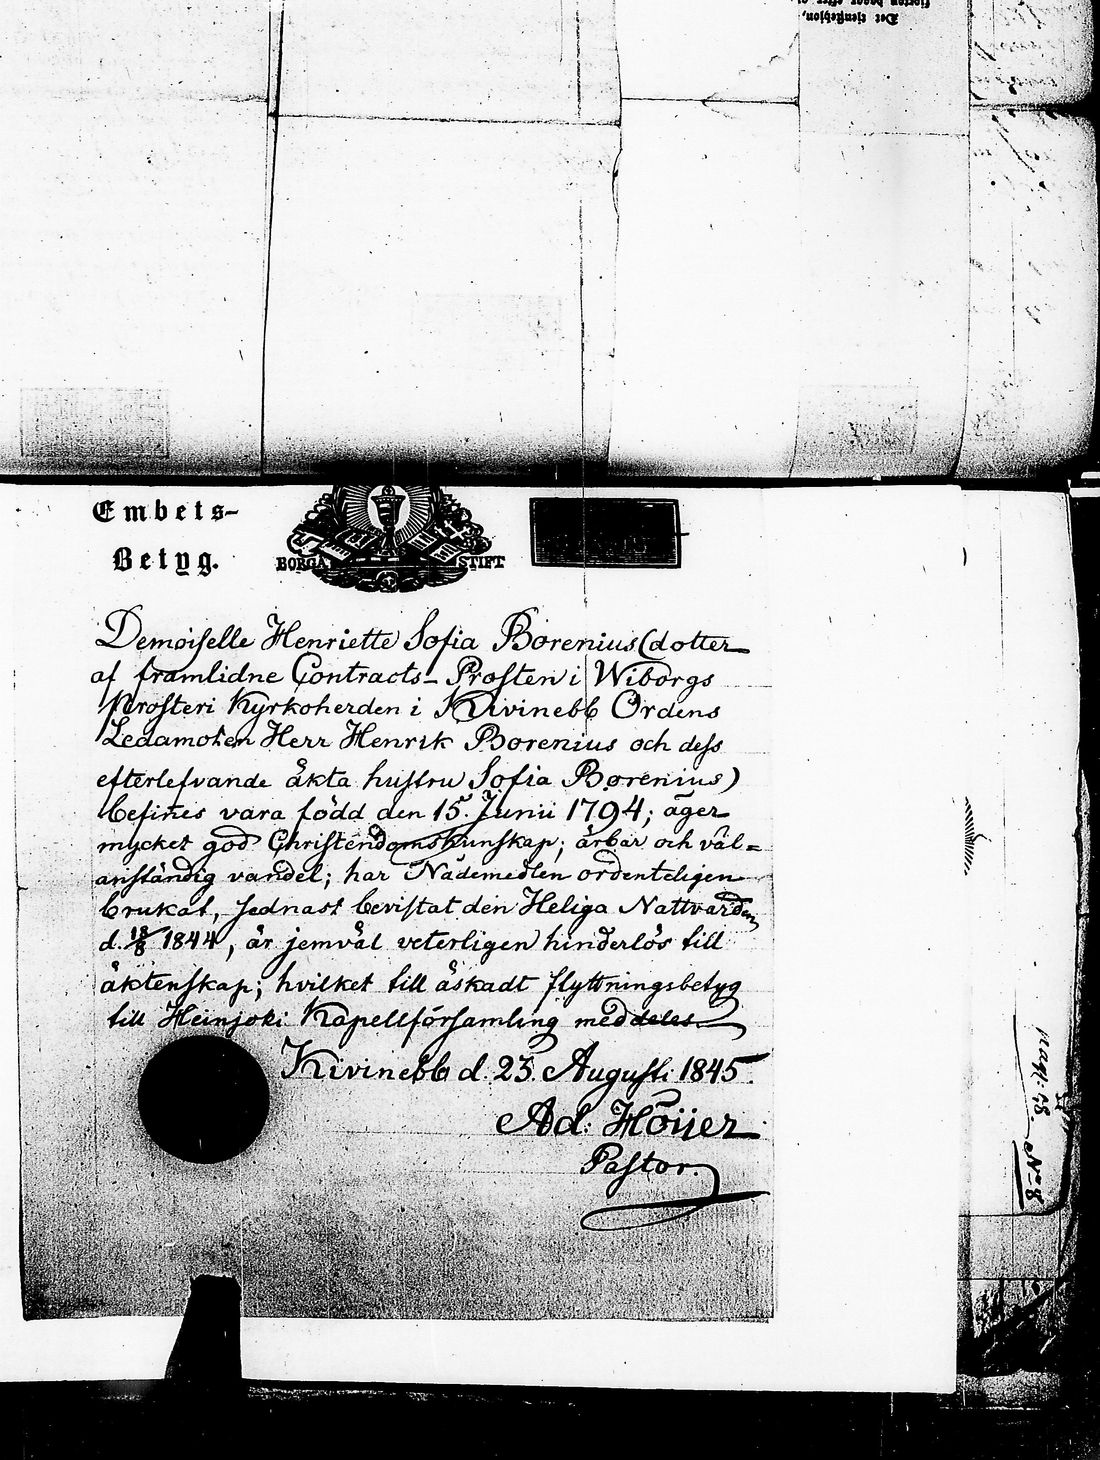 Det tjensteärjon,
Embets-
Betyg.
BORGÅ STIFT
Demoiselle Henriette Sofia Borenius (dotter
af framlidne Contracts-Prosten i Wiborgs
Prosteri Kyrkoherden i Kivinebb Ordens
Ledamoten Herr Henrik Borenius och dess
efterlefvande äkta hustru Sofia Borenius)
befines vara född den 15 Junii 1794; äger
mycket god Christendomskunskap; ärbar och väl=
anständig vandel; har Nådemedlen ordenteligen
brukat, sednast bevistat den Heliga Nattvarden
d. 18/8 1844, är jemväl veterligen hinderlös till
äktenskap; hvilket till äskadt flyttningsbetyg
till Heinjoki Kapellförsamling meddeles.
Kivinebb d. 23. Augusti 1845.
Ad. Höijer
Pastor.
N:o 8